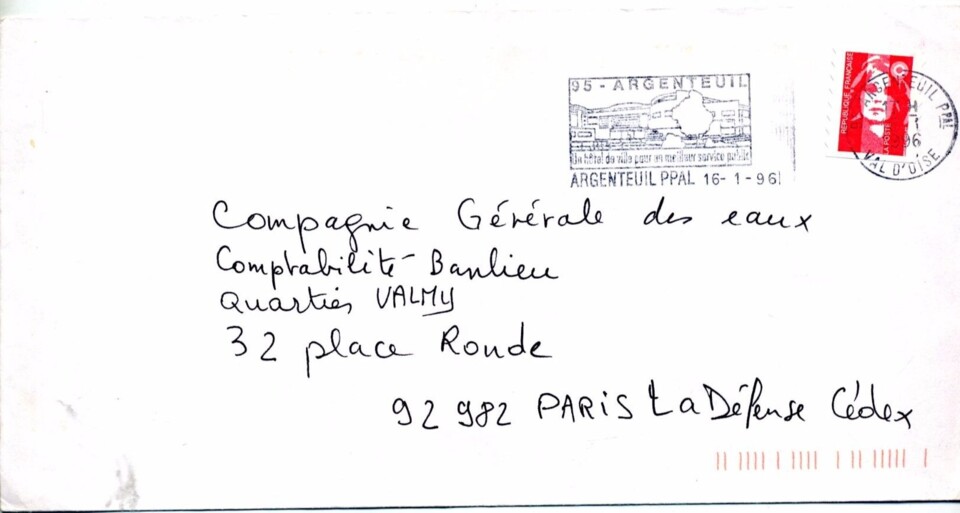 95 - ARGENTEUIL
Un hôtel de ville pour un meilleur service public
ARGENTEUIL PPAL 16-1-96
REPUBLIQUE FRANÇAISE
LA POSTE
ARGENTEUIL PPAL
96
VAL D'OISE
Compagnie Générale des eaux
Comptabilité - Banlieu
Quartiés VALMY
32 place Ronde
92 982 PARIS La Défense Cédex